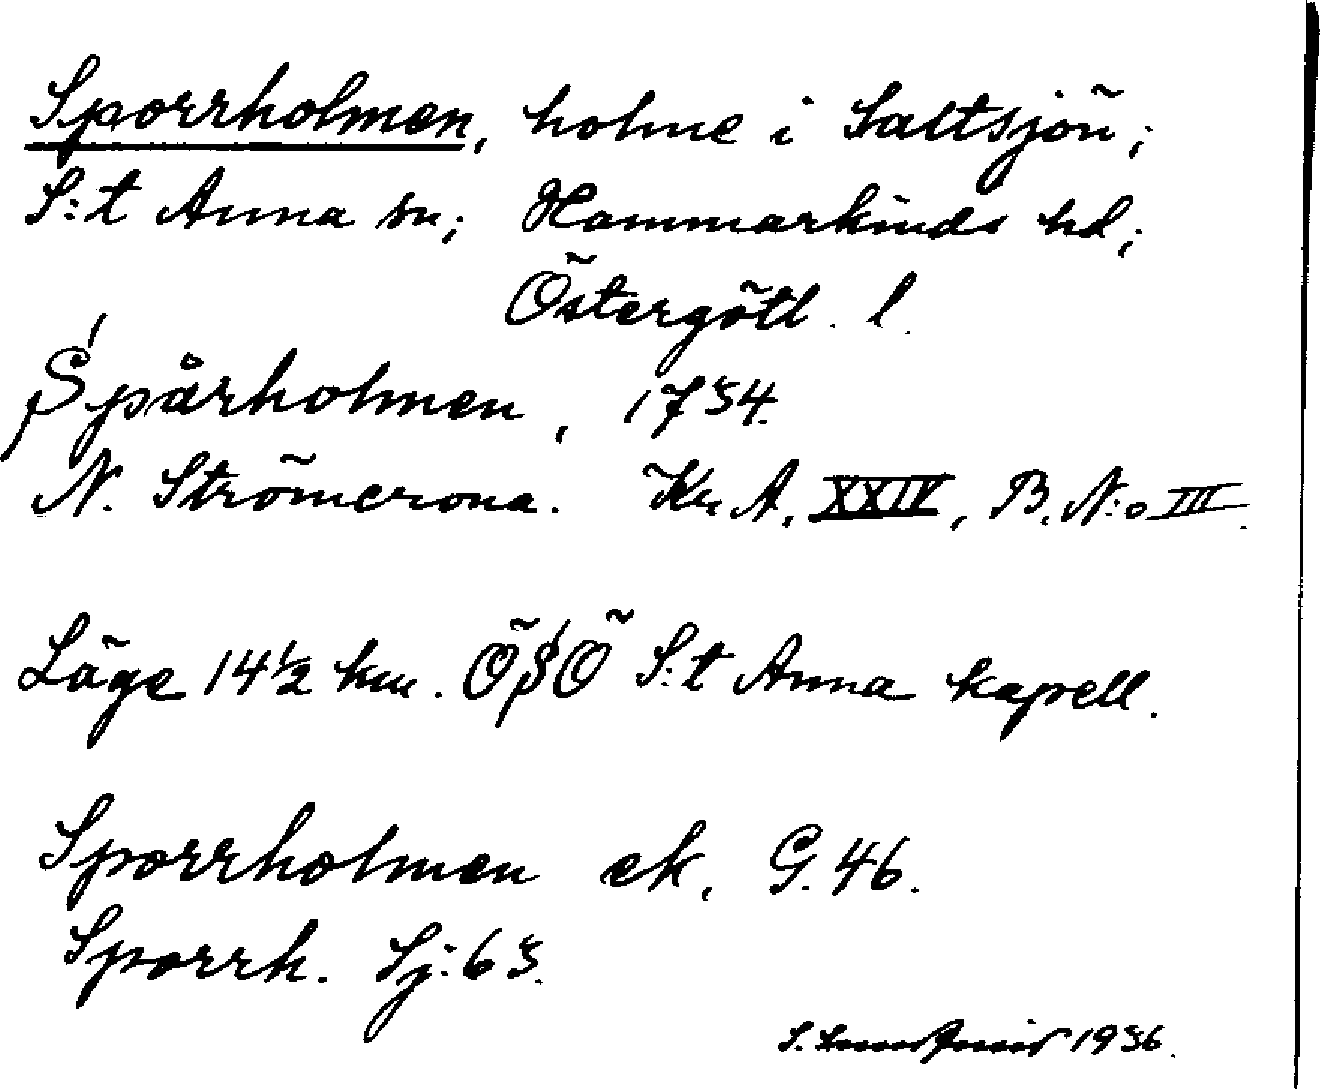 Sporrholmen, holme i Saltsjön;
S:t Anna sn; Hammarkinds hd;
Östergötl. l.
Spårholmen, 1734.
N. Strömcrona. Kr A, XXIV, B. N:o III.
Läge 14½ km. ÖSÖ S:t Anna kapell.
Sporrholmen ek, G. 46.
Sporrh. Sj: 63.
S. 1936.